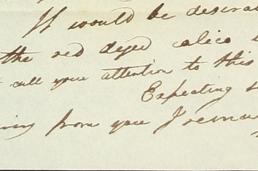 It would be desira
the red dyed calico
call your attention to this
Expecting
ing from you I remai